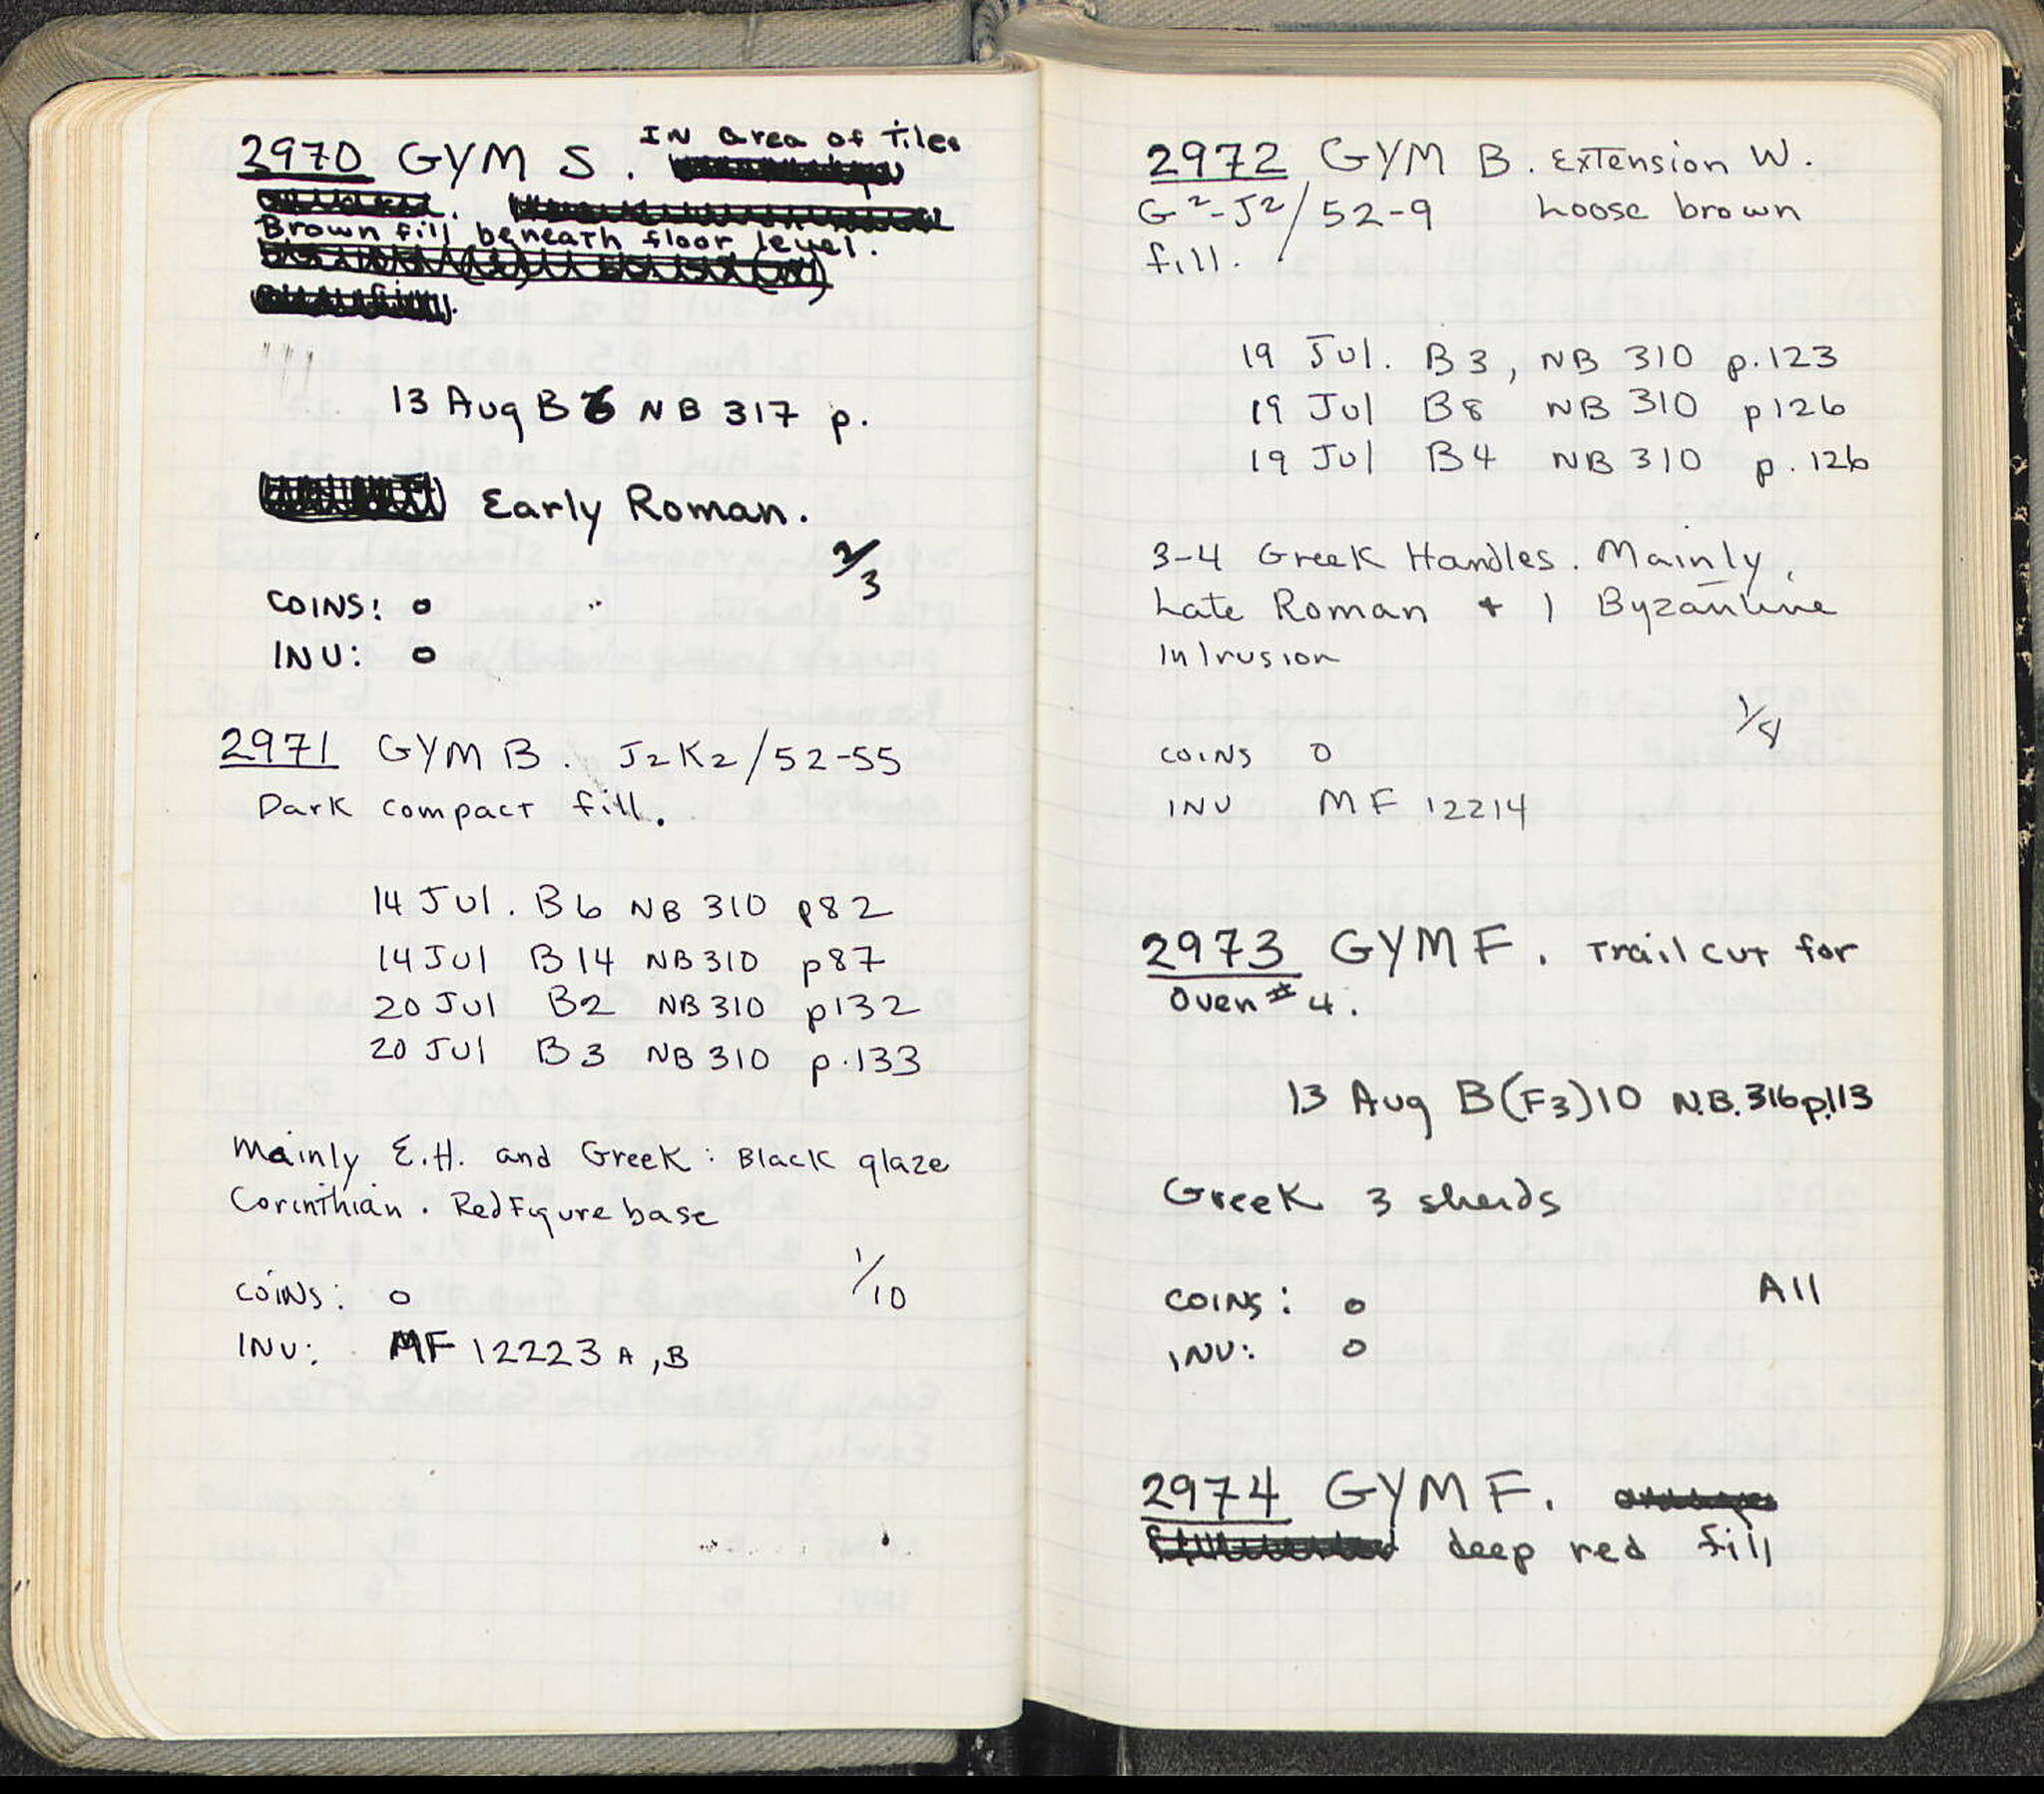 2970 GYM S. IN area of Tiles
Brown fill beneath floor level.
13 Aug B 6 NB 317 p.
Early Roman.
2/3
COINS: 0
INV: 0
2971 GYM B. J2K2/52-55
Dark compact fill.
14 Jul. B6 NB 310 p82
14 Jul B14 NB 310 p87
20 Jul B2 NB 310 p132
20 Jul B3 NB 310 p.133
Mainly E.H. and Greek: Black glaze
Corinthian. Red Figure base
1/10
COINS: 0
INV: MF 12223 A, B
2972 GYM B. Extension W.
G2-J2/52-9 Loose brown
fill.
19 Jul. B3, NB 310 p.123
19 Jul B8 NB 310 p126
19 Jul B4 NB 310 p.126
3-4 Greek Handles. Mainly
Late Roman + 1 Byzantine
Intrusion
COINS 0
INV MF 12214
2973 GYM F. Trail cut for
Oven #4.
13 Aug B(F3)10 N.B. 316 p.113
Greek 3 sherds
All
COINS: 0
INV: 0
2974 GYM F.
deep red fill